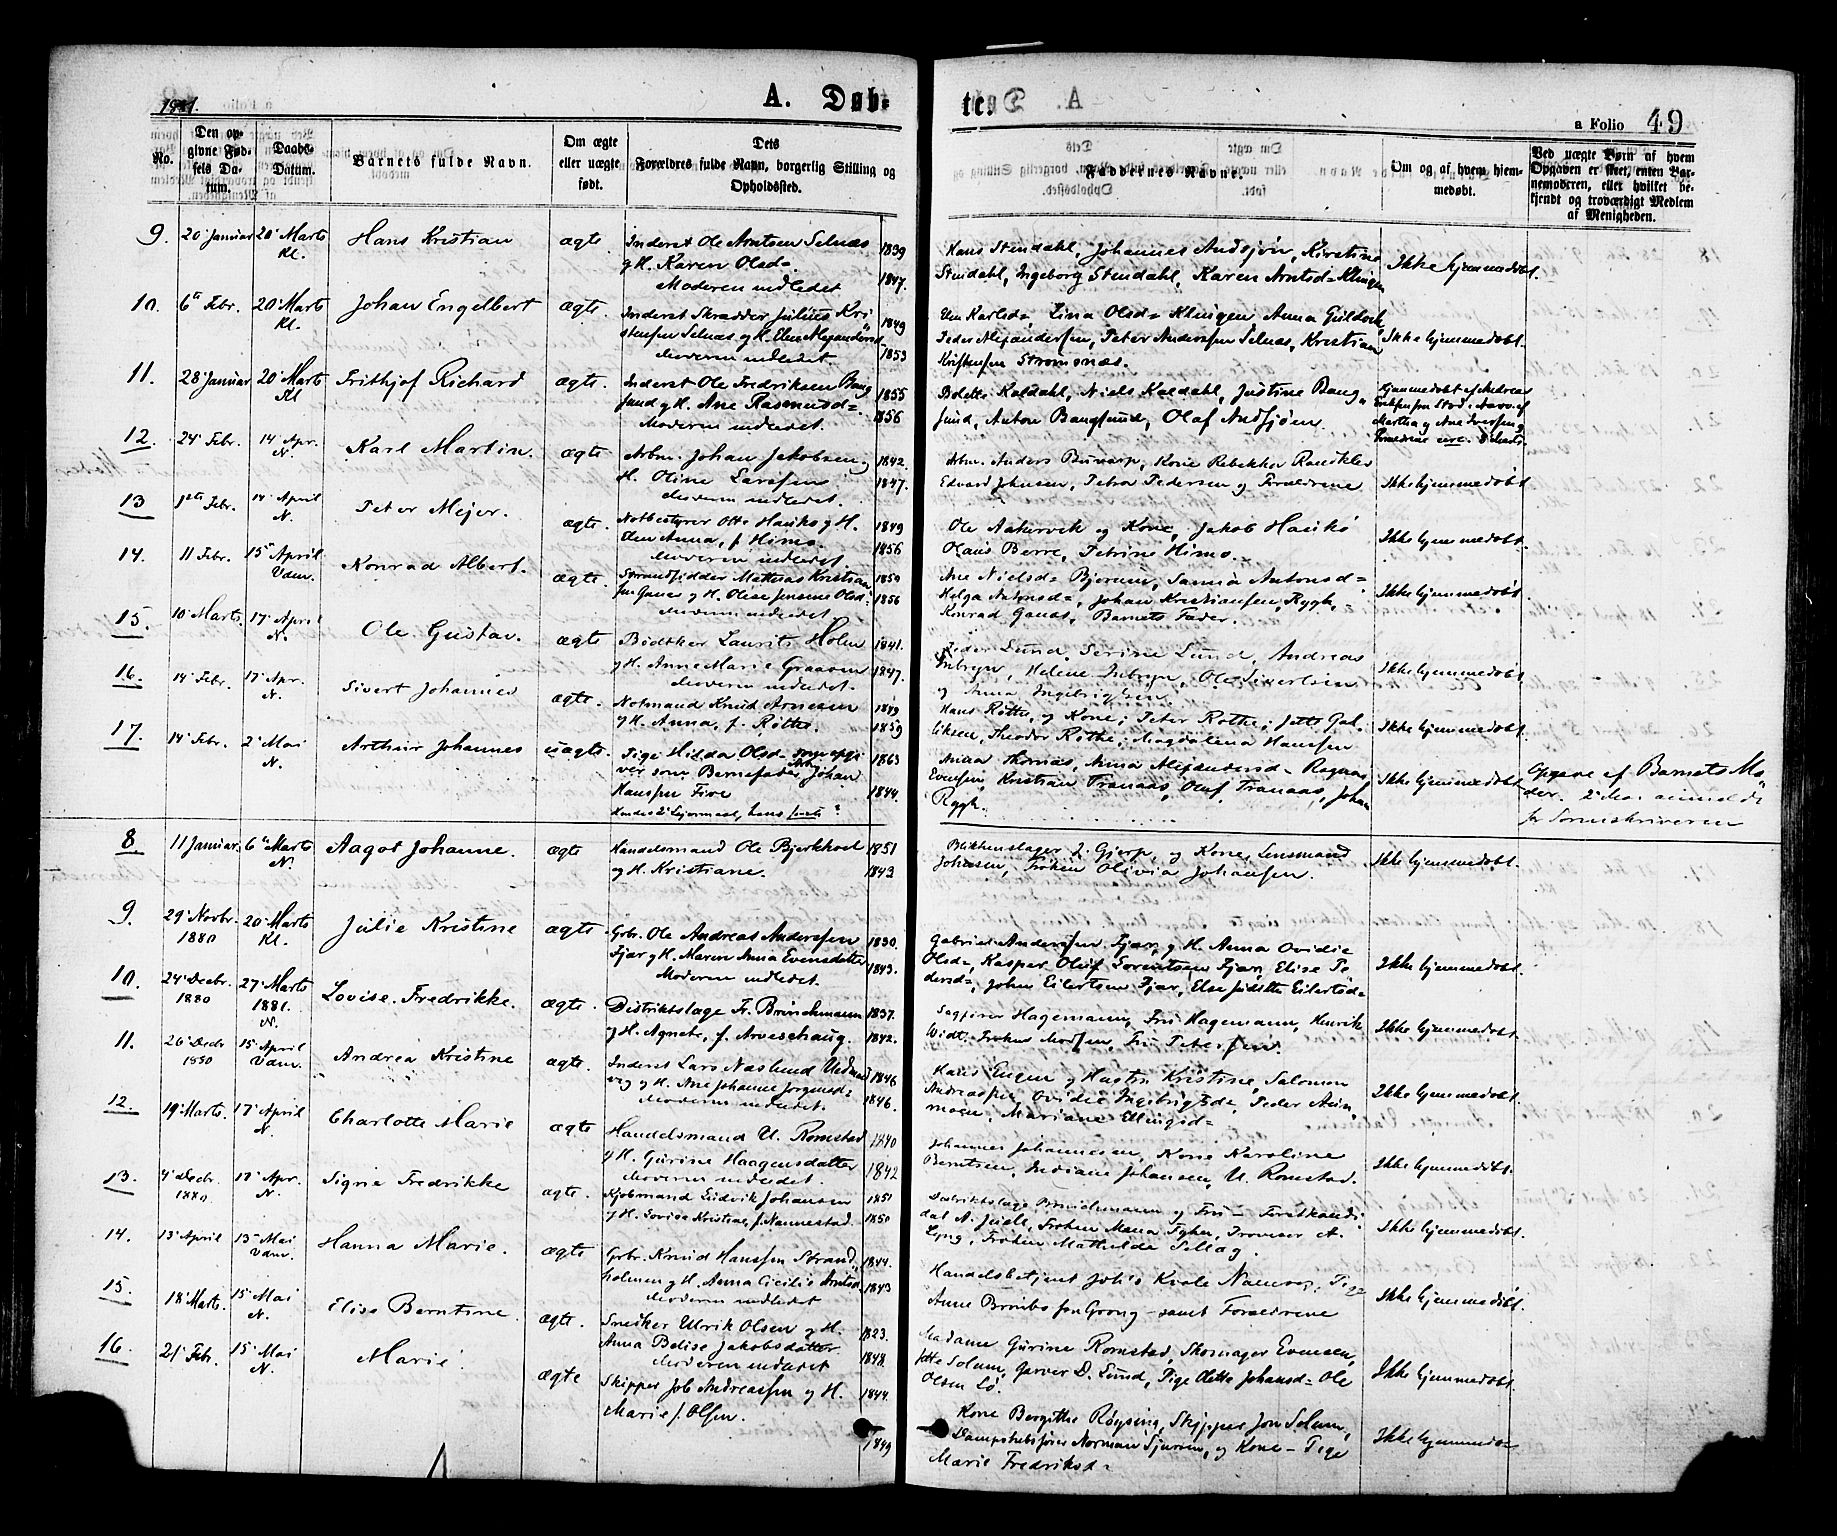 1881.
A. Døb-
te.
a Folio 49
No.
Den op-
givne Fød-
sels Da-
tum.
Daabs-
Datum.
Barnets fulde Navn.
Om ægte
eller uægte
født.
Dets
Forældres fulde Navn, borgerlig Stilling og
Opholdssted.
Faddernes Navne.
Om og af hvem hjem-
medøbt.
Ved uægte Børn af hvem
Opgaven er skeet, enten Bar-
nemoderen, eller hvilket be-
kjendt og troværdigt Medlem
af Menigheden.
9. 20 Januar 20 Marts Kl. Hans Kristian ægte Inderst Ole Arntsen Selnæs 1839
g H. Karen Olsd= 1847.
Moderen indledet
Hans Stendahl, Johannes Andsjøn, Kirstine
Stendahl, Ingeborg Stendahl, Karen Arntsd= Klingen
Ikke hjemmedøbt.
10. 6te Febr. 20 Marts Kl. Johan Engelbert ægte. Inderst Skrædder Julius Kri- 1849
stensen Selnæs g H. Eline Alexandersd 1853
Moderen indledet.
Karlsd=, Lina Olsd= Klingen Anna
Peder Alexandersen, Peter Andersen Selnæs, Kristian
Kristensen Strømsnæs.
Ikke hjemmedøbt.
11. 28 Januar 20 Marts Kl Frithjof Richard ægte. Inderst Ole Fredriksen Bang 1855
sund g H. Ane Rasmusd= 1856
Moderen indledet.
Kaldahl, Niels Kaldahl, Justine Bang-
sund, Anton Bangsund, Olaf Andsjøen
Hjemmedøbt af Andreas
12 24 Febr. 14 Apr. N. Karl Martin. ægte Arbm. Johan Jakobsen g 1842.
H. Oline Larssen 1847.
Moderen indledet.
Arbm. Anders, Kone Rebekka
Edvard Johnsen, Petra Pedersen g Forældrene
Ikke hjemmedøbt
13 1ste Febr. 14 April N. Peter Mejer. ægte. Notbestyrer Otto Hauks g H. 1849
Anna, f. Himo. 1856
Moderen indledet.
Ole Aakervik og Kone, Jakob
Olaus Berre, Petrine Himo.
Ikke hjemmedøbt.
14. 11 Febr. 15 April Vdm. Konrad Albert. ægte. Strandsidder Mathias Kristian 1850
sen Ganæs g H. Oline Jensine Olsd: 1856
Moderen indledet.
Ane Nielsd= Bjørum, Sanna Antonsd=
Helga Antonsd=, Johan Kristiansen, Rygh,
Konrad Ganæs, Barnets Fader.
Ikke hjemmedøbt
15. 10 Marts. 17 April N. Ole Gustav. ægte Bødtker Laurits Holm 1841.
g H. Anne Marie Graaven 1847.
Moderen indledet.
Peder Lund, Serine Lund, Andreas
Inbryn, Helene Inbryn, Ole Sivertsen
g Anna Ingebrigtsen.
Ikke hjemmedøbt.
16. 14 Febr. 17 Apr. N. Sivert Johannes ægte. Notmand Knud Arnesen 1849
g H. Anna, f. Røthe. 1859
Hans Røthe, og Kone; Peter Røthe; Jette
Theodor Røthe; Magdalena Hanssen
Ikke hjemmedøbt.
17. 14 Febr. 2 Mai N. Arthur Johannes uægte. Pige Hilda Olsd= som opgi 1863
ver som Barnefader Johan
Hanssen Five 1844.
Hendes 2det Lejermaal, hans første
Anna Thornæs, Anna Alexandersd= Ragnaas,
Evensen, Kristian Tranaas, Oluf Tranaas, Johan
Rygh.
Ikke hjemmedøbt.
Opgave af Barnets Mo-
der. 2 Mai anmeldt
for Sorenskriveren
8. 11 Januar 6te Marts N. Aagot Johanne. ægte Handelsmand Ole Bjerkhoel 1851
og H. Kristiane. 1843
Blikkenslager J. Gjerp, og Kone, Lensmand
Johnsen, Frøken Olivia Johansen.
Ikke hjemmedøbt.
9. 29 Novbr. 1880 20 Marts Kl. Julie Kristine ægte. Gbr. Ole Andreas Anderssen 1830.
Fjær g H. Maren Anna Evensdatter 1843.
Moderen indledet
Gabriel Andersen Fjær, g H. Anna Ovidie
Olsd=, Kasper Oluf Sorentsen Fjær, Elise Pe-
dersd=, Johan Eilertsen Fjær, Else Judithe Eilertsd=
Ikke hjemmedøbt.
10. 24 Decbr. 1880 27 Marts 1881. N. Lovise Fredrikke. ægte Distriktslæge Fr. Brinchmann 1837.
og H. Agnete, f. Arveschaug. 1842.
Sagfører Hagemann, Fru Hagemann, Henrik
Widt, Frøken Fru Petersen.
Ikke hjemmedøbt.
11. 26 Decbr 1880 15 April Vdm. Andrea Kristine ægte. Inderst Lars Næslund 1846
vig g H. Ane Johanne Jørgensd= 1846.
Moderen indledet.
Hans Engen g Hustru Kristine, Salomon
Andreassen Ovidie Ingebrigtsd=, Peder Aun-
moen, Mariane Ellingsd=
Ikke hjemmedøbt.
12. 19 Marts. 17 April N. Charlotte Marie ægte Handelsmand U. Romstad 1840
g H. Gurine Haagensdatter 1842
Moderen indledet.
Johannes Johannesen, Kone Karoline
Berntsen, Indiane Johansen, U. Romstad.
Ikke hjemmedøbt.
13. 4 Decbr. 1880. 18 Apr. N. Signe Fredrikke ægte. Kjøbmand Ludvik Johansen 1851
g H. Lovise Kristine, f. Nannestad. 1850
Distriktslæge Brinchmann og Fru - Forstkandi-
dat A. Juell, Frøken Mena Tyher, Provisor A.
Lyng, Frøken Mathilde Sellæg.
Ikke hjemmedøbt.
14. 13 April 15 Mai Vdm. Hanna Marie. ægte. Gbr. Knud Hanssen Strand- 1844.
holmen g H. Anna Cicilie Arntsd= 1843
Moderen indledet
Handelsbetjent Johs Kvale Namsos, Pige
Anne Brembo fra Grong - samt Forældrene
Ikke hjemmedøbt.
15. 18 Marts. 15 Mai N. Elise Berntine. ægte. Snedker Ulrik Olsen g H. 1823.
Anna Beline Jakobsdatter 1848.
Moderen indledet
Madame Gurine Romstad, Skomager Evensen,
Jette Solum, Garver D. Lund, Pige Olette Johansd= Ole
Olsen Lø.
Ikke hjemmedøbt.
16. 21 Febr. 15 Mai N. Marie. ægte Skipper Job Andreassen g H. 1844.
Marie f. Olsen. 1849
Kone Bergitte Røysing, Skipper Jon Solum,
Dampskibsfører Norman Sjursen, og Kone - Pige
Marie Fredriksd=
Ikke hjemmedø=